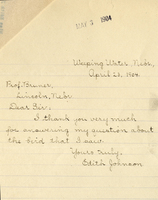 MAY 3 1904
Weeping Water, Nebr.,
April 23, 1904.
Prof. Bruner,
Lincoln, Nebr.
Dear Sir,
I thank you very much
for answering my question about
the bird that I saw.
Yours truly,
Edith Johnson